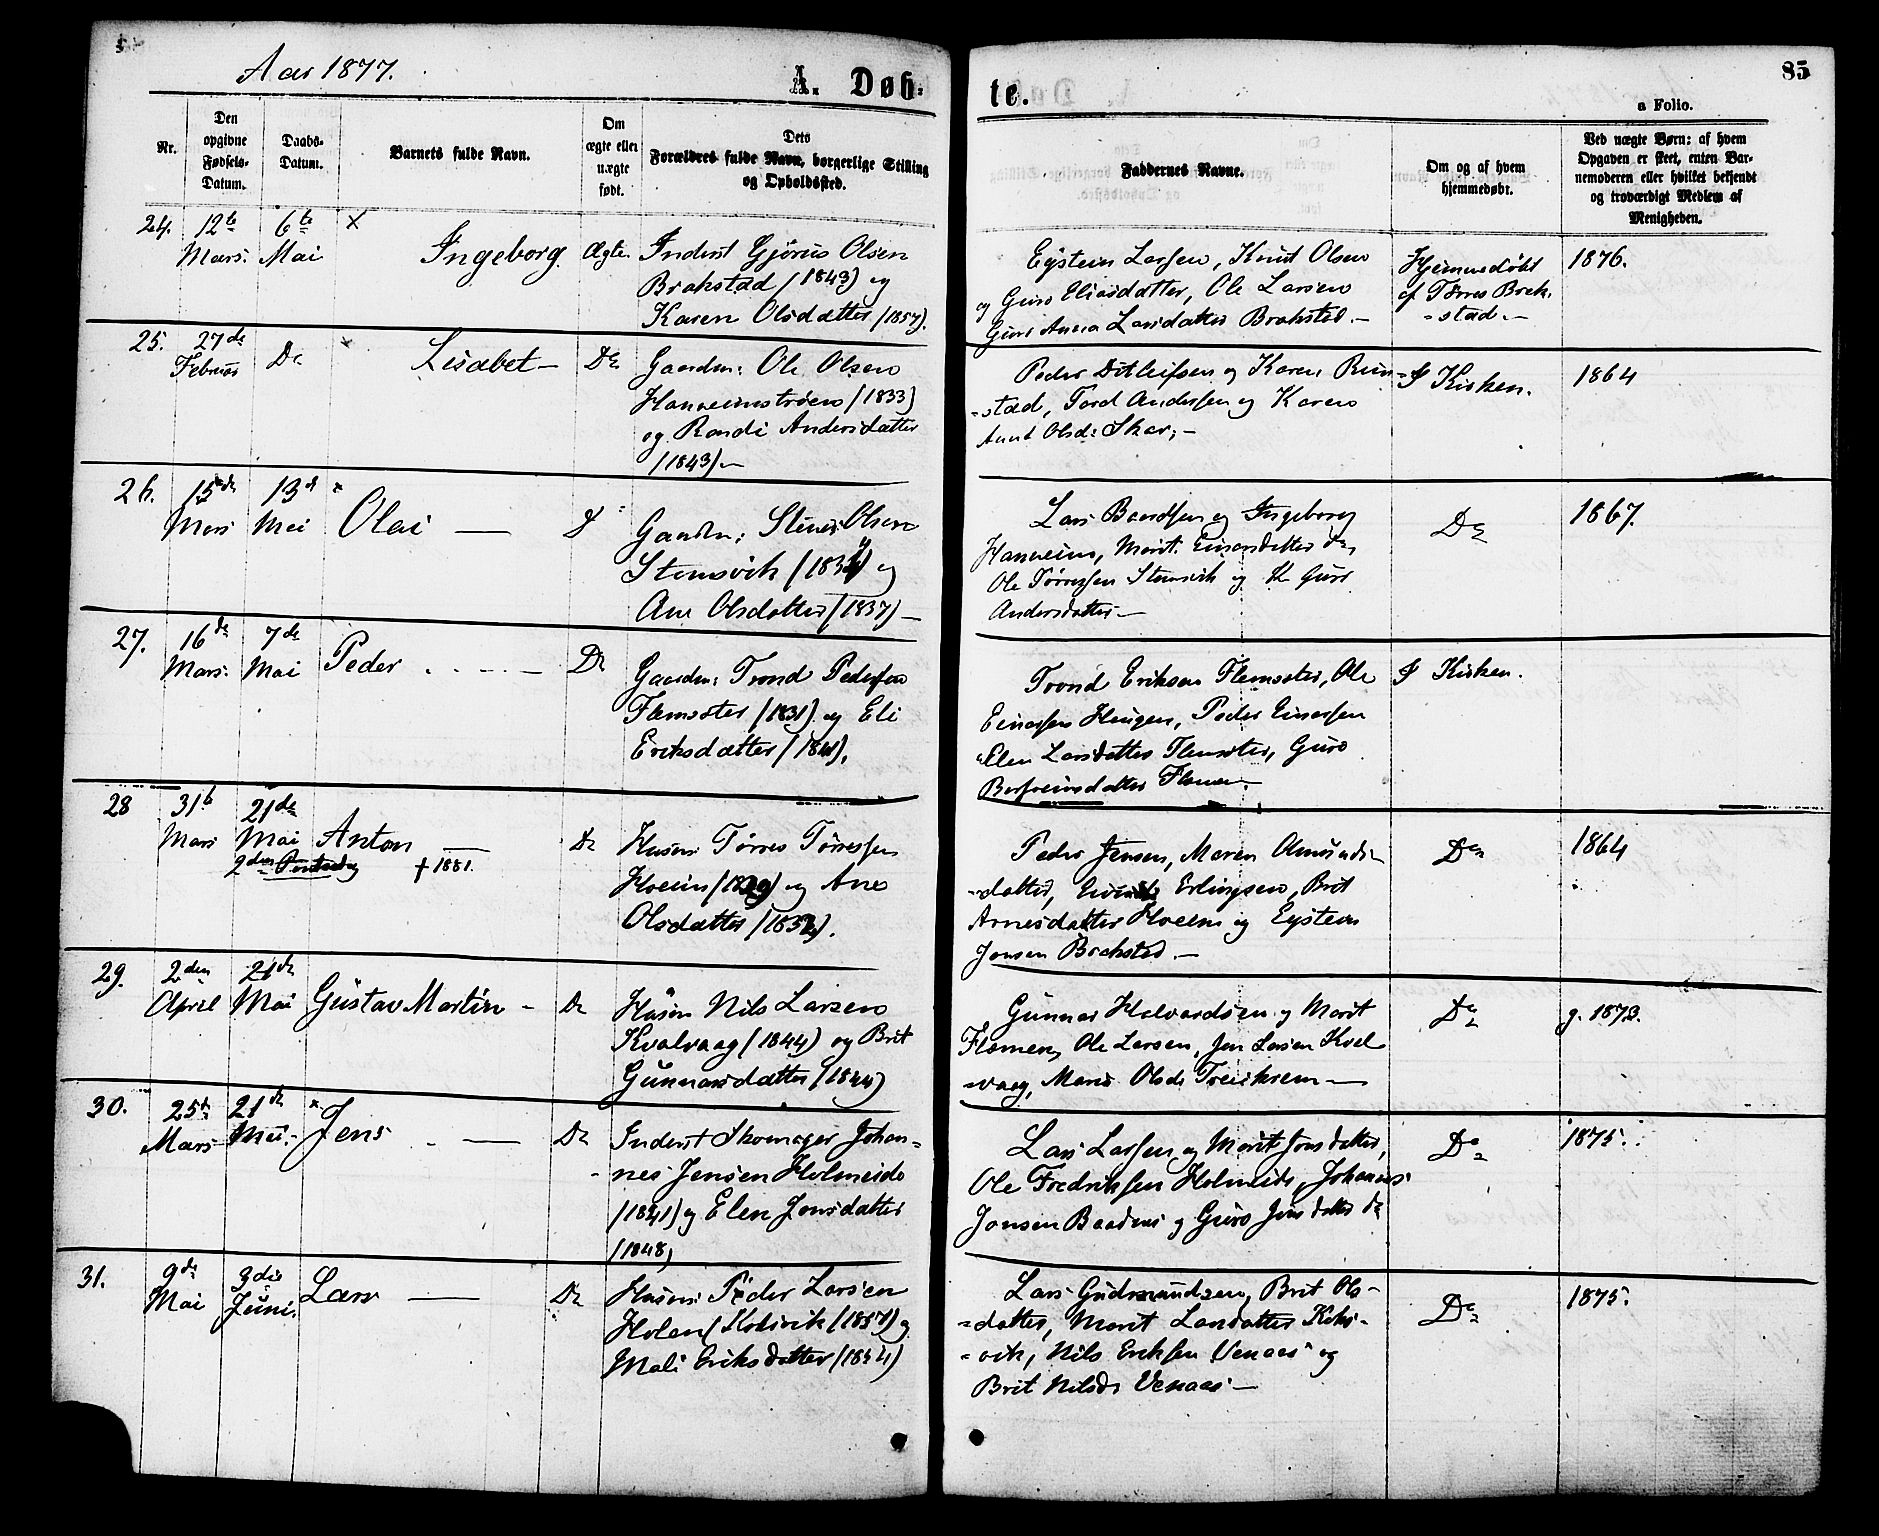 Aar 1877.
A. Døb-
te.
85
a Folio.
Nr.
Den opgivne Fødsels-Datum.
Daabs-Datum.
Barnets fulde Navn.
Om ægte eller uægte født.
Dets Forældres fulde Navn, borgerlige Stilling og Opholdssted.
Faddernes Navne.
Om og af hvem hjemmedøbt.
Ved uægte Børn: af hvem Opgaven er skeet, enten Barnemoderen eller hvilket bekjendt og troværdigt Medlem af Menigheden.
24. 12te Mars. 6te Mai × Ingeborg. Ægte.
Inderst Gjørus Olsen
Brakstad (1843) og
Karen Olsdatter (1857).
Eystein Larsen, Knut Olsen
og Guro Eliasdatter, Ole Larsen
Guri Anna Larsdatter Brakstad.—
Hjemmedøbt
af Tørres Brak-
stad.—
1876.
25. 27de Februar Do × Lisabet— Do
Gaardm: Ole Olsen
Hanneimstrøen (1833)
og Randi Andersdatter
(1843)—
Peder Ditlefsen og Karen Rim-
-stad, Tord Andersen og Karen
Anne Olsd: Skar,—
I Kirken.
1864
26. 15de Mars 13de Mai × Olai —
Gaardm: Steiner Olsen
Stemsvik (183) og
Ane Olsdatter (1837)—
Lars Baardsen og Ingeborg
Hanneim, Marit Einarsdatter do,
Ole Tørresen Stemsvik og Guri
Andersdatter—
Do
1867.
27. 16de Mars. 7de Mai Peder Do
Gaardm: Trond Pedersen
Flemsæter (1831) og Eli
Eriksdatter (1841),
Trond Eriksen Flemsæter, Ole
Einarsen Haugen, Peder Einarsen
Elen Larsdatter Flemsæter, Guro
Berfreinsdatter Flemen.
I Kirken.
28 31te Mars 21de Mai
2den Pintsedag
Anton — † 1881. Do
Husm: Tørres Tørresen
Hoem og Ane
Olsdatter (1852).
Peder Jensen, Maren Amunds-
-datter, Erlingsen, Brit
Arnesdatter Hoem og Eystein
Jonsen Brakstad.—
Do
1864
29. 2den April 21de Mai Gustav Martin - Do
Husm Nils Larsen
Kvalvaag (1844) og Brit
Gunnarsdatter (1844)
Gunnar Halvardsen og Marit
Flemen, Ole Larsen, Jon Larsen Kval
-vaag, Marie Olsd: Treekrem—
Do
g. 1873.
30. 25de Mars 21de Mai. × Jens — Do
Inderst Skomager Johan-
-nes Jensen Holmeide
(1841) og Elen Jonsdatter
(1848)
Lars Larsen og Marit Jonsdatter,
Ole Fredriksen Holmeide, Johannes
Jonsen Baadnes og Guro Jonsdatter do
Do
1875.
31. 9de Mai 3die Juni. Lars — Do
Husm: Peder Larsen
Holen (Kolsvik (1857) og
Mali Eriksdatter (1854)
Lars Gudmundsen, Brit Ols-
-datter, Marit Larsdatter Kols-
-vik, Nils Eriksen Venaas og
Brit Nilsd: Venaas—
Do
1875.